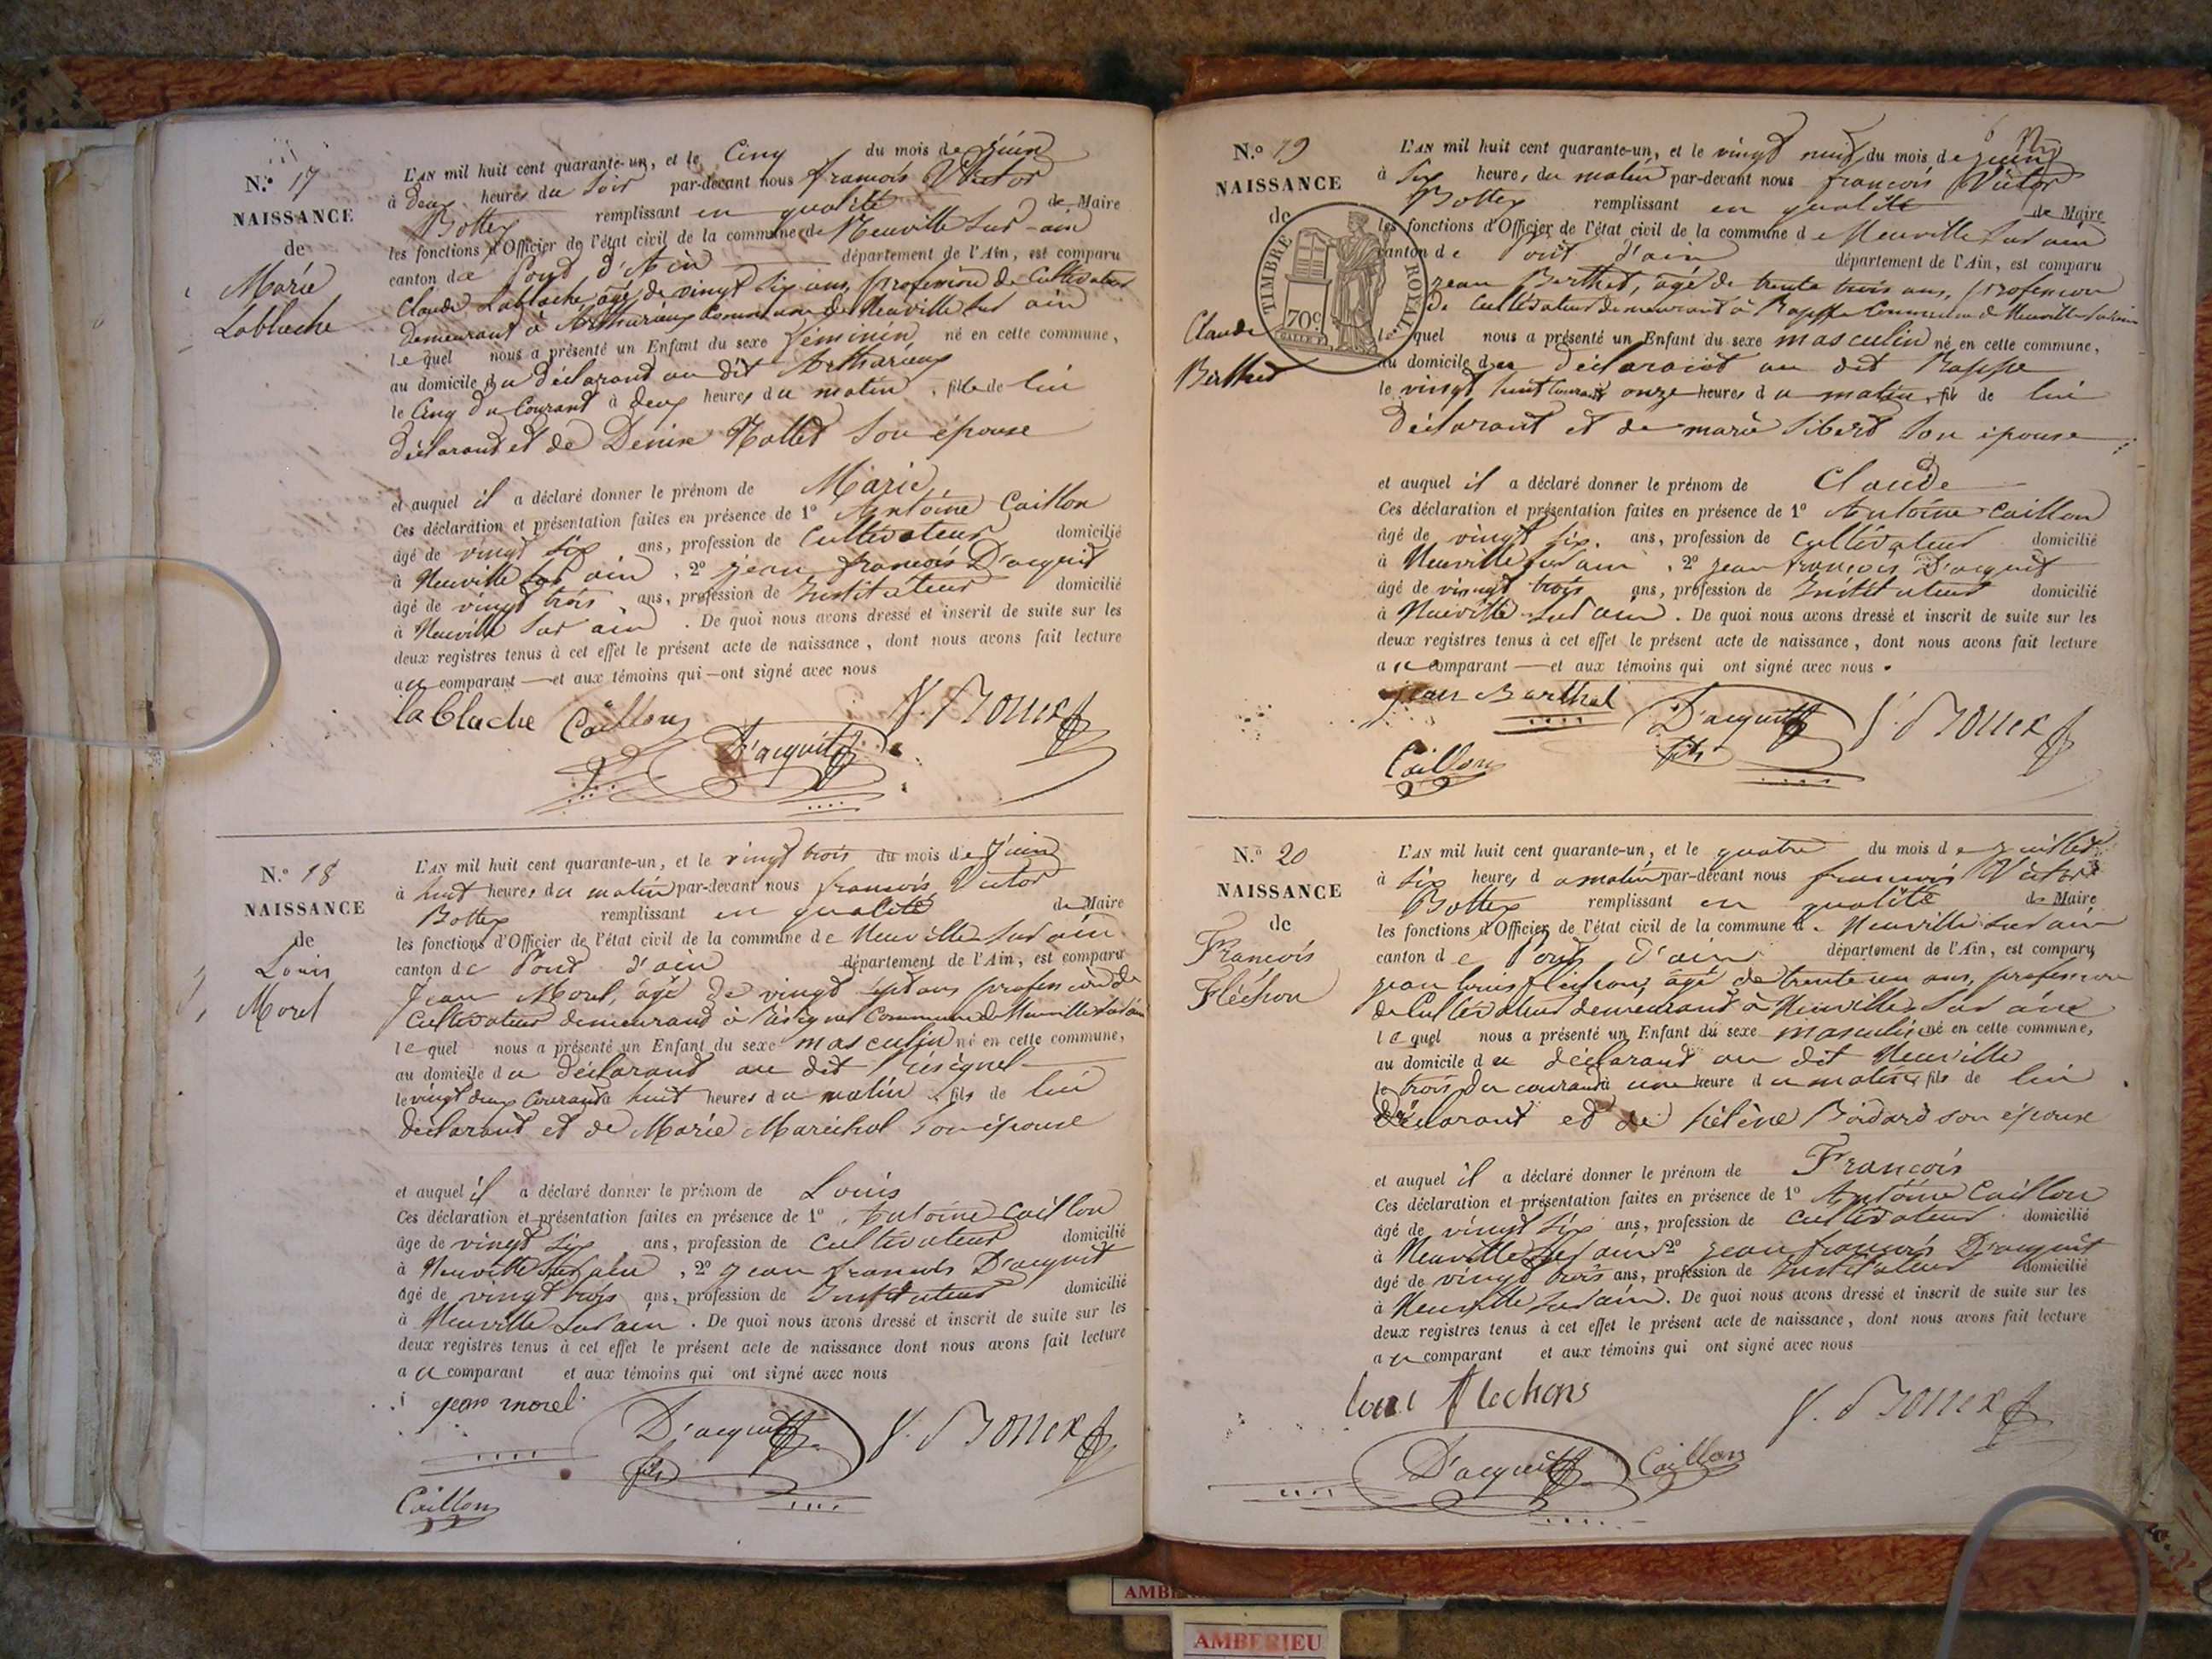 N.º 17
NAISSANCE
de
Marie
Lablache
L'AN mil huit cent quarante-un, et le Cinq du mois de juin
à deux heures du Soir par-devant nous françois Victor
Bottex remplissant en qualité de Maire
les fonctions d'Officier de l'état civil de la commune de Neuville Sur-ain
canton de Pont d'Ain département de l'Ain, est comparu
Claude Lablache, âgé de vingt Six ans, profession de Cultivateur
demeurant à Commune de Neuville Sur ain
lequel nous a présenté un Enfant du sexe féminin, né en cette commune,
au domicile du déclarant au dit
le Cinq du Courant à deux heures du matin, fille de lui
déclarant et de Denise Nallet Son épouse
et auquel il a déclaré donner le prénom de Marie
Ces déclaration et présentation faites en présence de 1º Antoine Caillon
âgé de vingt Six ans, profession de Cultivateur domicilié
à Neuville Sur ain, 2º jean françois D'acquit
âgé de vingt trois ans, profession de Instituteur domicilié
à Neuville Sur ain. De quoi nous avons dressé et inscrit de suite sur les
deux registres tenus à cet effet le présent acte de naissance, dont nous avons fait lecture
au comparant et aux témoins qui ont signé avec nous
lablache Caillon V. Bottex
D'acquit
N.º 18
NAISSANCE
de
Louis
Morel
L'AN mil huit cent quarante-un, et le vingt trois du mois de Juin
à huit heures du matin par-devant nous françois Victor
Bottex remplissant en qualité de Maire
les fonctions d'Officier de l'état civil de la commune de Neuville Sur ain
canton de Pont d'ain département de l'Ain, est comparu
Jean Morel, âgé de vingt sept ans profession de
Cultivateur demeurant à Commune de Neuville Sur ain
lequel nous a présenté un Enfant du sexe masculin né en cette commune,
au domicile du déclarant au dit
le vingt deux Courant à huit heures du matin, fils de lui
déclarant et de Marie Maréchal Son épouse
et auquel il a déclaré donner le prénom de Louis
Ces déclaration et présentation faites en présence de 1º Antoine Caillon
âgé de vingt Six ans, profession de Cultivateur domicilié
à Neuville Sur ain, 2º jean françois D'acquit
âgé de vingt trois ans, profession de Instituteur domicilié
à Neuville Sur ain. De quoi nous avons dressé et inscrit de suite sur les
deux registres tenus à cet effet le présent acte de naissance dont nous avons fait lecture
au comparant et aux témoins qui ont signé avec nous
jean morel D'acquit V. Bottex
fils
Caillon
N.º 19
NAISSANCE
de
Claude
Berthet
TIMBRE ROYAL
70c
L'AN mil huit cent quarante-un, et le vingt neuf du mois de juin
à Six heures du matin par-devant nous françois Victor
Bottex remplissant en qualité de Maire
les fonctions d'Officier de l'état civil de la commune de Neuville Sur ain
canton de Pont d'ain département de l'Ain, est comparu
jean Berthet, âgé de trente trois ans, profession
de Cultivateur demeurant à Rappe Commune de Neuville Sur ain
lequel nous a présenté un Enfant du sexe masculin né en cette commune,
au domicile du déclarant au dit Rappe
le vingt huit Courant onze heures du matin, fils de lui
déclarant et de marie Sibert Son épouse
et auquel il a déclaré donner le prénom de Claude
Ces déclaration et présentation faites en présence de 1º Antoine Caillon
âgé de vingt Six. ans, profession de Cultivateur domicilié
à Neuville Sur ain, 2º jean françois D'acquit
âgé de vingt trois ans, profession de Instituteur domicilié
à Neuville Sur ain. De quoi nous avons dressé et inscrit de suite sur les
deux registres tenus à cet effet le présent acte de naissance, dont nous avons fait lecture
au comparant et aux témoins qui ont signé avec nous.
jean Berthet D'acquit V. Bottex
fils
Caillon
N.º 20
NAISSANCE
de
François
Fléchon
L'AN mil huit cent quarante-un, et le quatre du mois de juillet
à Six heures du matin par-devant nous françois Victor
Bottex remplissant en qualité de Maire
les fonctions d'Officier de l'état civil de la commune de Neuville Sur ain
canton de Pont d'ain département de l'Ain, est comparu
jean louis fléchon, âgé de trente un ans, profession
de Cultivateur demeurant à Neuville Sur ain
lequel nous a présenté un Enfant du sexe masculin, né en cette commune,
au domicile du déclarant au dit Neuville
le trois du courant à une heure du matin, fils de lui
déclarant et de hélène Boidard son épouse
et auquel il a déclaré donner le prénom de François
Ces déclaration et présentation faites en présence de 1º Antoine Caillon
âgé de vingt Six ans, profession de Cultivateur domicilié
à Neuville Sur ain 2º jean françois D'acquit
âgé de vingt trois ans, profession de Instituteur domicilié
à Neuville Sur ain. De quoi nous avons dressé et inscrit de suite sur les
deux registres tenus à cet effet le présent acte de naissance, dont nous avons fait lecture
au comparant et aux témoins qui ont signé avec nous
flechon V. Bottex
D'acquit Caillon
AMBERIEU